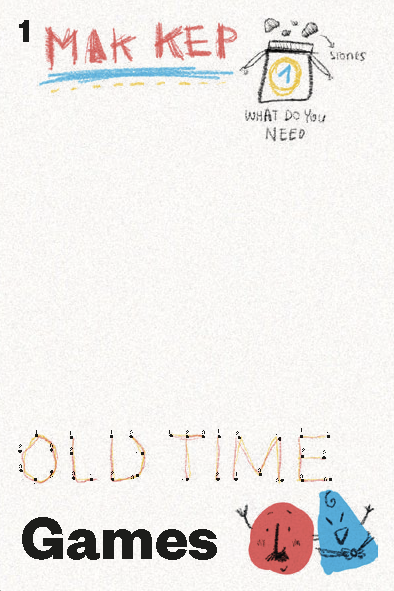 1
MAK KEP
stones
1
WHAT DO YOU
NEED
OLD TIME
Games